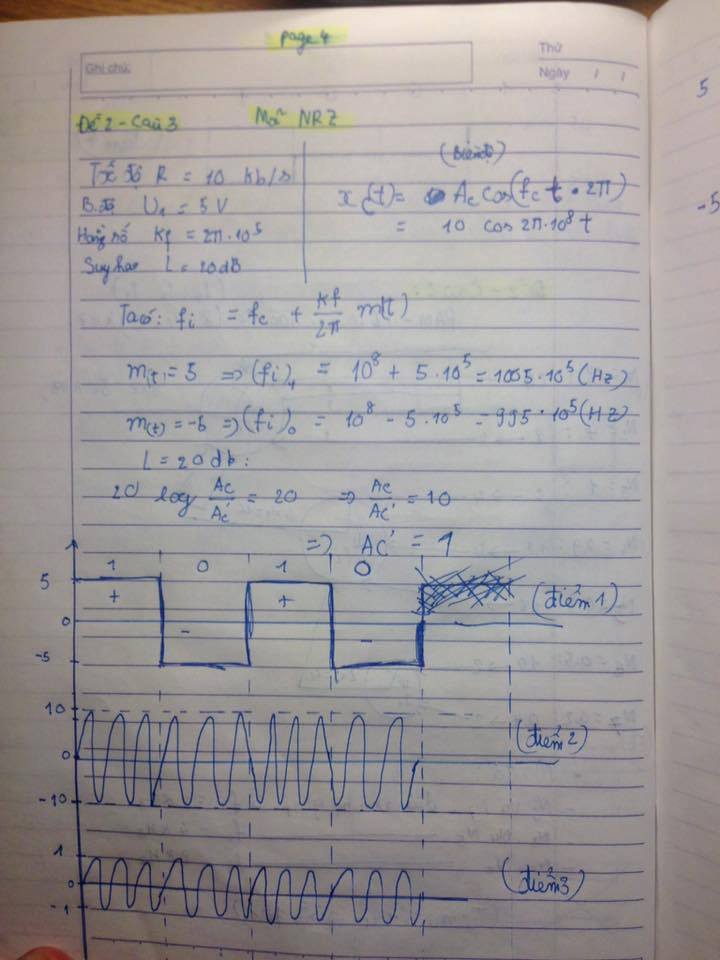 page 4
Ghi chú:
Thứ
Ngày / /
Đề 2 - Câu 3
Mã NRZ
Tốc độ R = 10 kb/s
B.độ U₁ = 5 V
Hằng số Kf = 2π.10⁵
Suy hao L = 20dB
(Biên độ)
x(t) = Ac cos(fc t . 2π)
= 10 cos 2π.10⁸ t
Ta có: fi = fc + Kf/2π m(t)
m(t) = 5 => (fi)₁ = 10⁸ + 5.10⁵ = 1005.10⁵ (Hz)
m(t) = -5 => (fi)₀ = 10⁸ - 5.10⁵ = 995.10⁵ (Hz)
L = 20 db:
20 log Ac/Ac' = 20 => Ac/Ac' = 10
=> Ac' = 1
1 0 1 0
5
+ +
0
- -
-5
(điểm 1)
10
0
-10
(điểm 2)
1
0
-1
(điểm 3)
5
-5